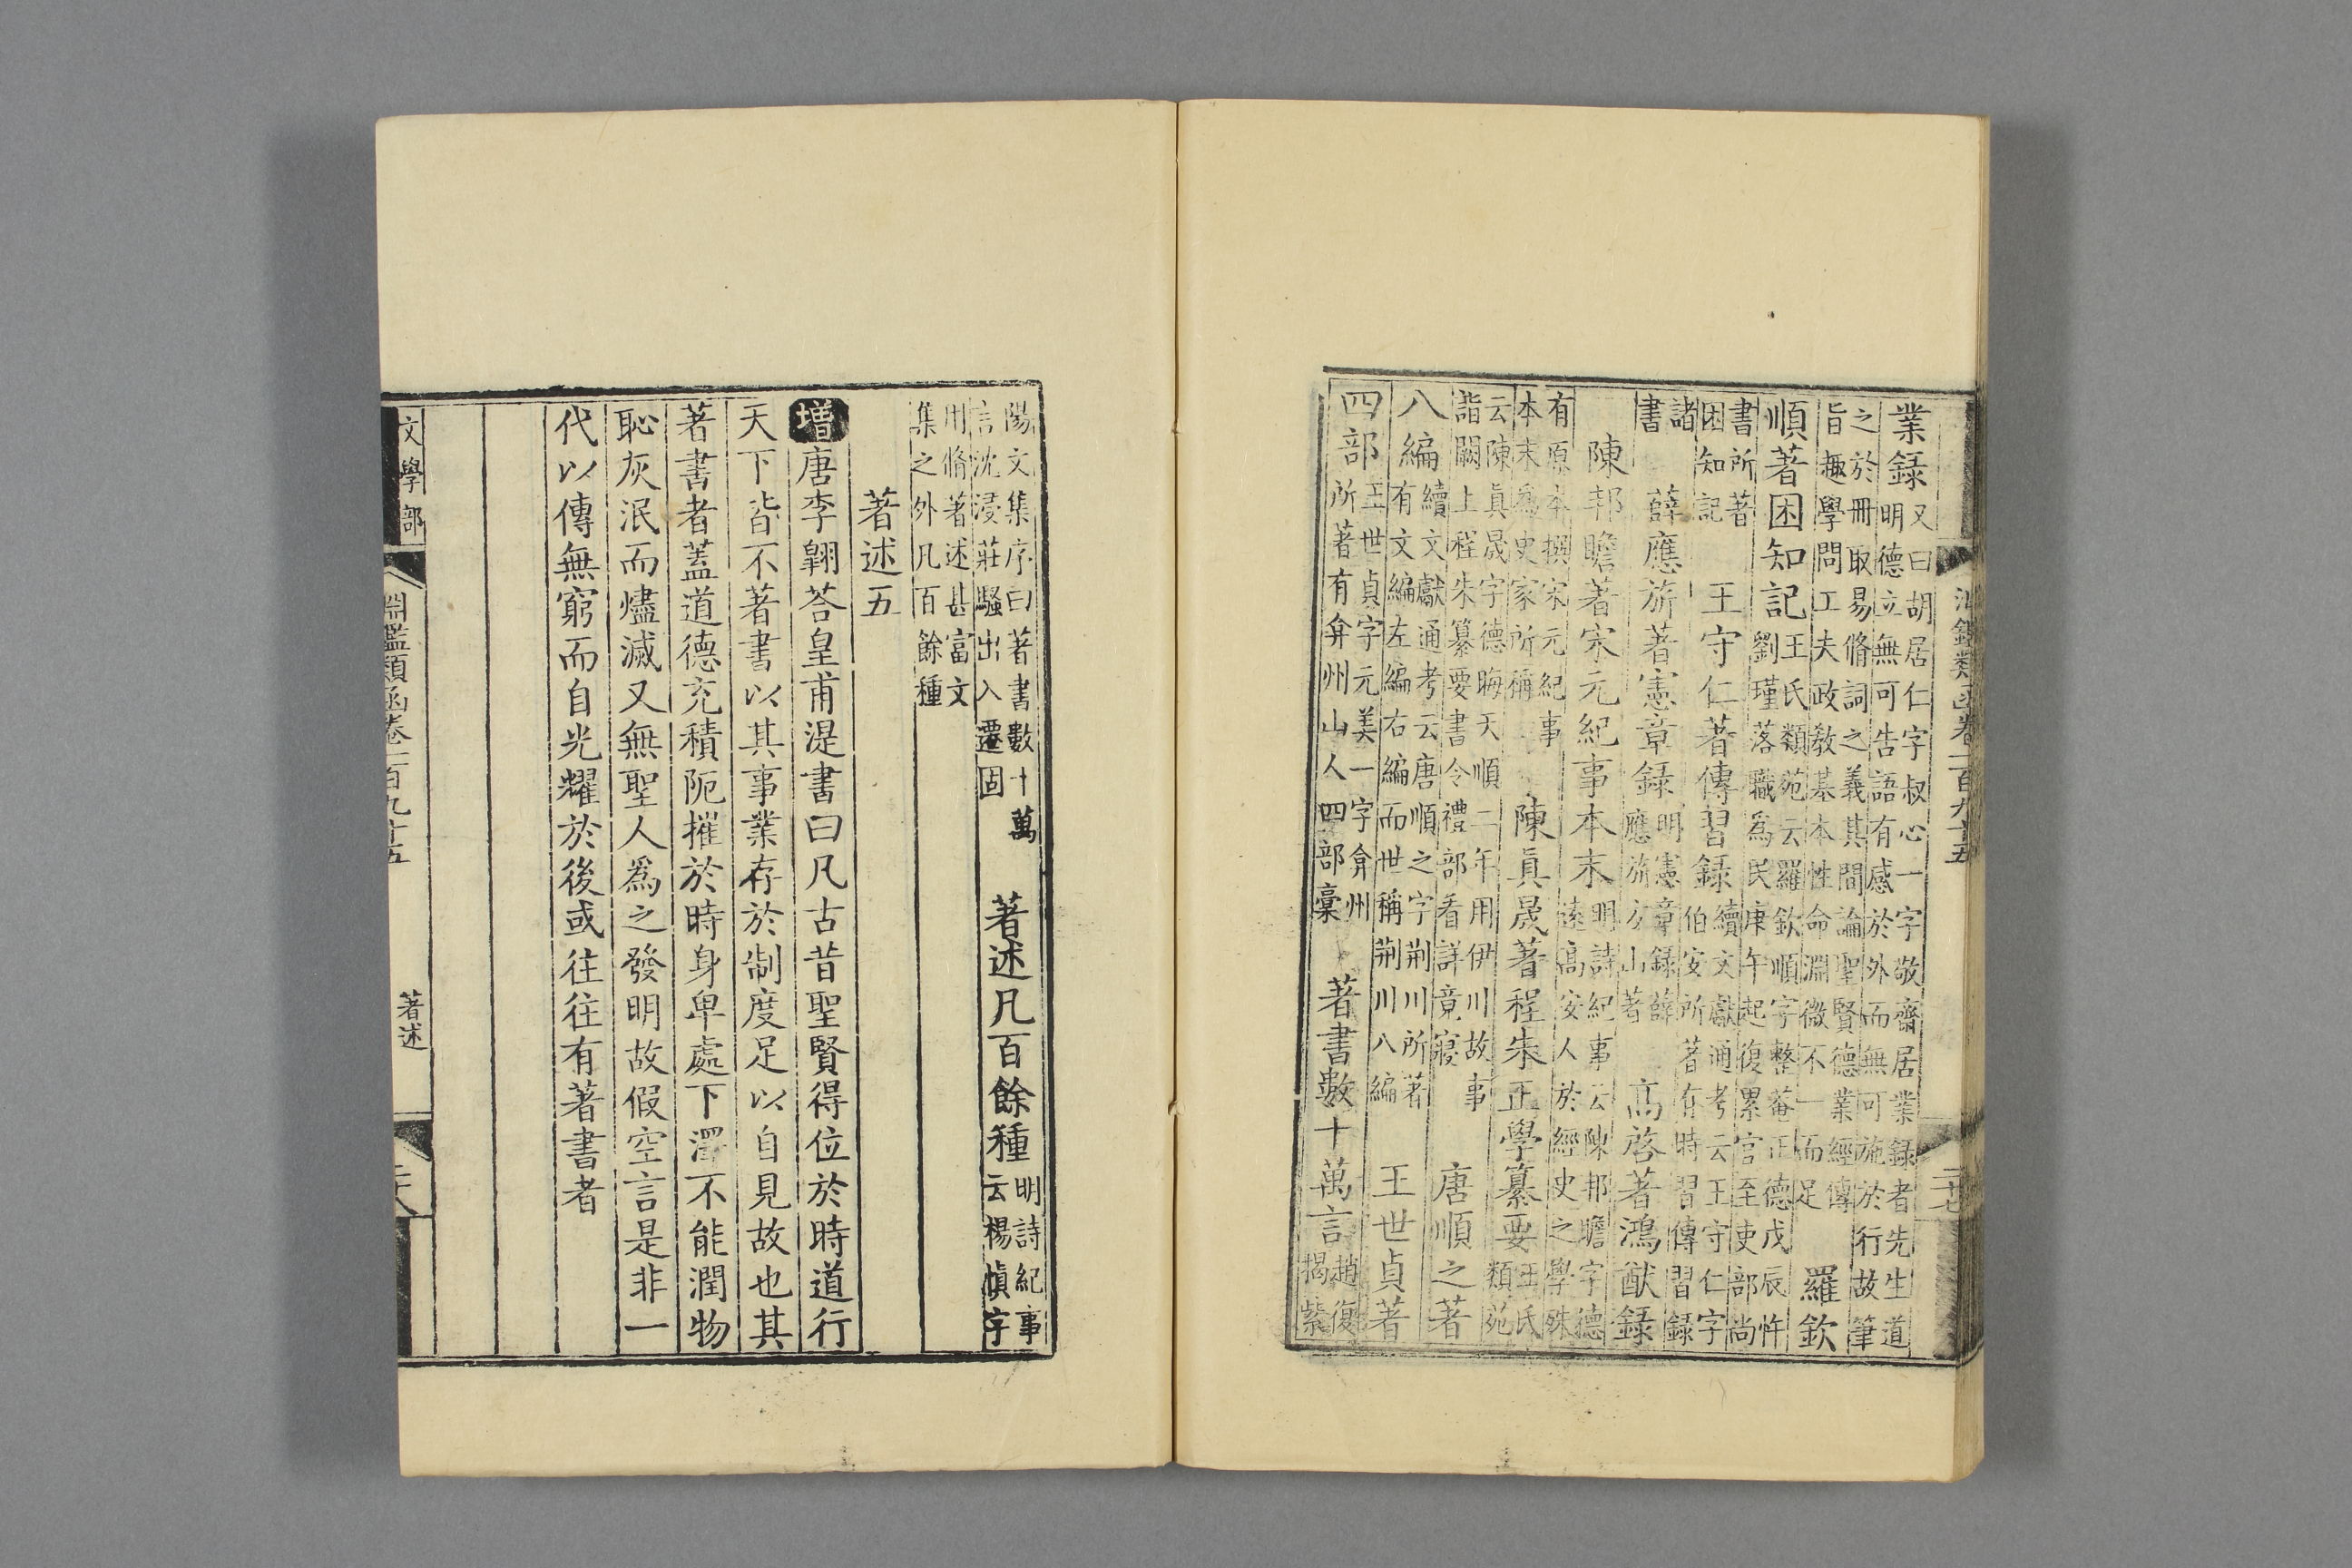 淵鑑類函卷一百九十五 二十七
業録 又曰胡居仁字叔心一字敬齋居業録者先生道
明德立無可告語有感於外而無可施於行故筆
之於冊取易脩詞之義其間論聖賢德業經傳
旨趣學問工夫政教基本性命淵微不一而足 羅欽
順著困知記 王氏類苑云羅欽順字整菴正德戊辰忤
劉瑾落職爲民庚午起復累官至吏部尚
書所著
困知記 王守仁著傳習録 續文獻通考云王守仁字
伯安所著有時習傳習録
諸
書 薛應旂著憲章録 明憲章録薛
應旂方山著 高啓著鴻猷録
陳邦瞻著宋元紀事本末 明詩紀事云陳邦瞻字德
遠高安人於經史之學殊
有原本本撰宋元紀事
本末爲史家所稱 陳眞晟著程朱正學纂要 王氏
類苑
云陳眞晟字德晦天順二年用伊川故事
詣闕上程朱纂要書令禮部看詳竟寢 唐順之著
八編 續文獻通考云唐順之字荆川所著
有文編左編右編而世稱荆川八編 王世貞著
四部 王世貞字元美一字弇州
所著有弇州山人四部稾 著書數十萬言 趙復
揭紫
陽文集序曰著書數十萬
言沈浸莊騷出入遷固 著述凡百餘種 明詩紀事
云楊愼字
用脩著述甚富文
集之外凡百餘種
著述五
增唐李翺荅皇甫湜書曰凡古昔聖賢得位於時道行
天下皆不著書以其事業存於制度足以自見故也其
著書者蓋道德充積阨摧於時身卑處下澤不能潤物
恥灰泯而燼滅又無聖人爲之發明故假空言是非一
代以傳無窮而自光耀於後或往往有著書者
文學部 淵鑑類函卷一百九十五 著述 二十八